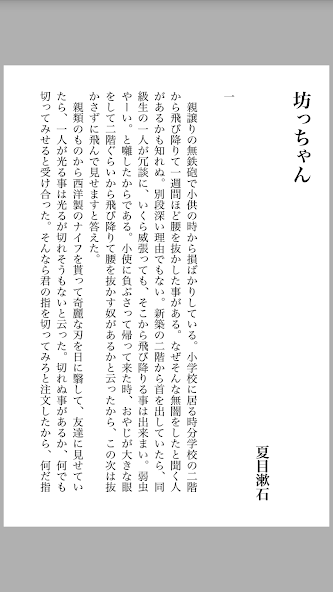 坊っちゃん
夏目漱石
一
親譲りの無鉄砲で小供の時から損ばかりしている。小学校に居る時分学校の二階
から飛び降りて一週間ほど腰を抜かした事がある。なぜそんな無闇をしたと聞く人
があるかも知れぬ。別段深い理由でもない。新築の二階から首を出していたら、同
級生の一人が冗談に、いくら威張っても、そこから飛び降りる事は出来まい。弱虫
やーい。と囃したからである。小使に負ぶさって帰って来た時、おやじが大きな眼
をして二階ぐらいから飛び降りて腰を抜かす奴があるかと云ったから、この次は抜
かさずに飛んで見せますと答えた。
親類のものから西洋製のナイフを貰って奇麗な刃を日に翳して、友達に見せてい
たら、一人が光る事は光るが切れそうもないと云った。切れぬ事があるか、何でも
切ってみせると受け合った。そんなら君の指を切ってみろと注文したから、何だ指